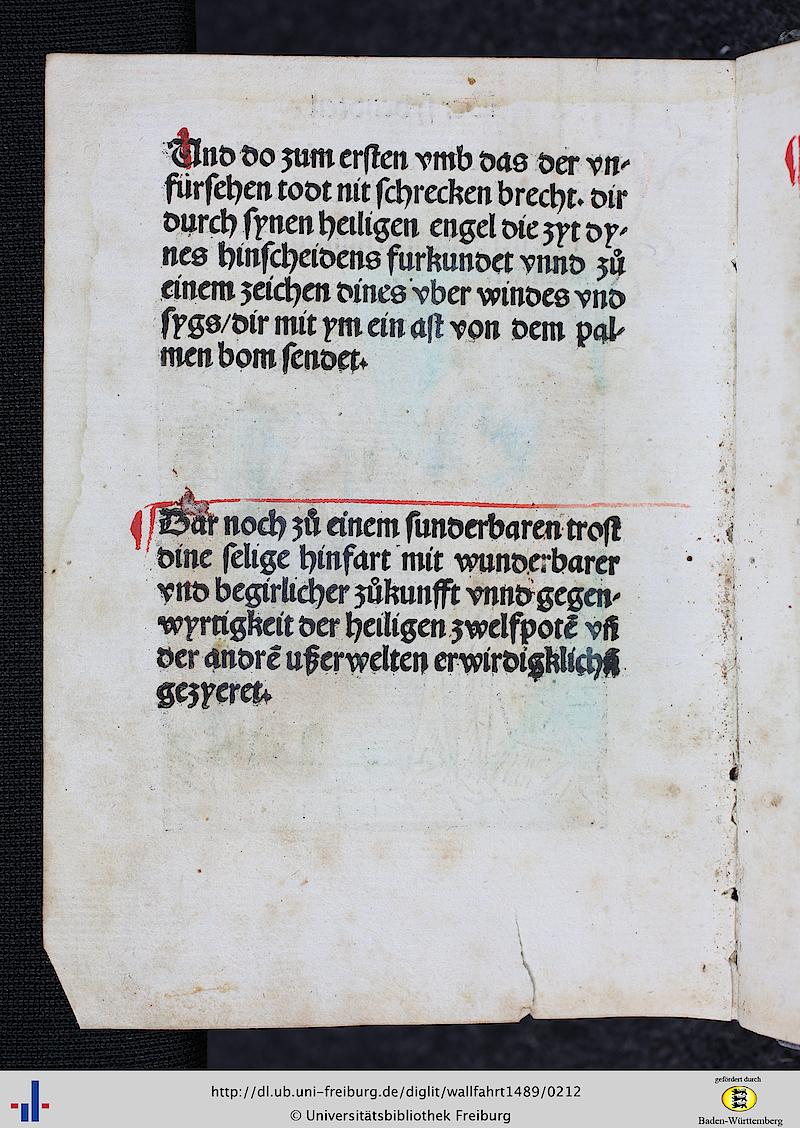 Und do zum ersten vmb das der vn-
fürsehen todt nit schrecken brecht. dir
durch synen heiligen engel die zyt dy-
nes hinscheidens furkundet vnnd zů
einem zeichen dines vber windes vnd
sygs/dir mit ym ein ast von dem pal-
men bom sendet.
Dar noch zů einem sunderbaren trost
dine selige hinfart mit wunderbarer
vnd begirlicher zůkunfft vnnd gegen-
wyrtigkeit der heiligen zwelfpotē vñ
der andrē ußerwelten erwirdigklichē
gezyeret.
http://dl.ub.uni-freiburg.de/diglit/wallfahrt1489/0212
© Universitätsbibliothek Freiburg
gefördert durch
Baden-Württemberg